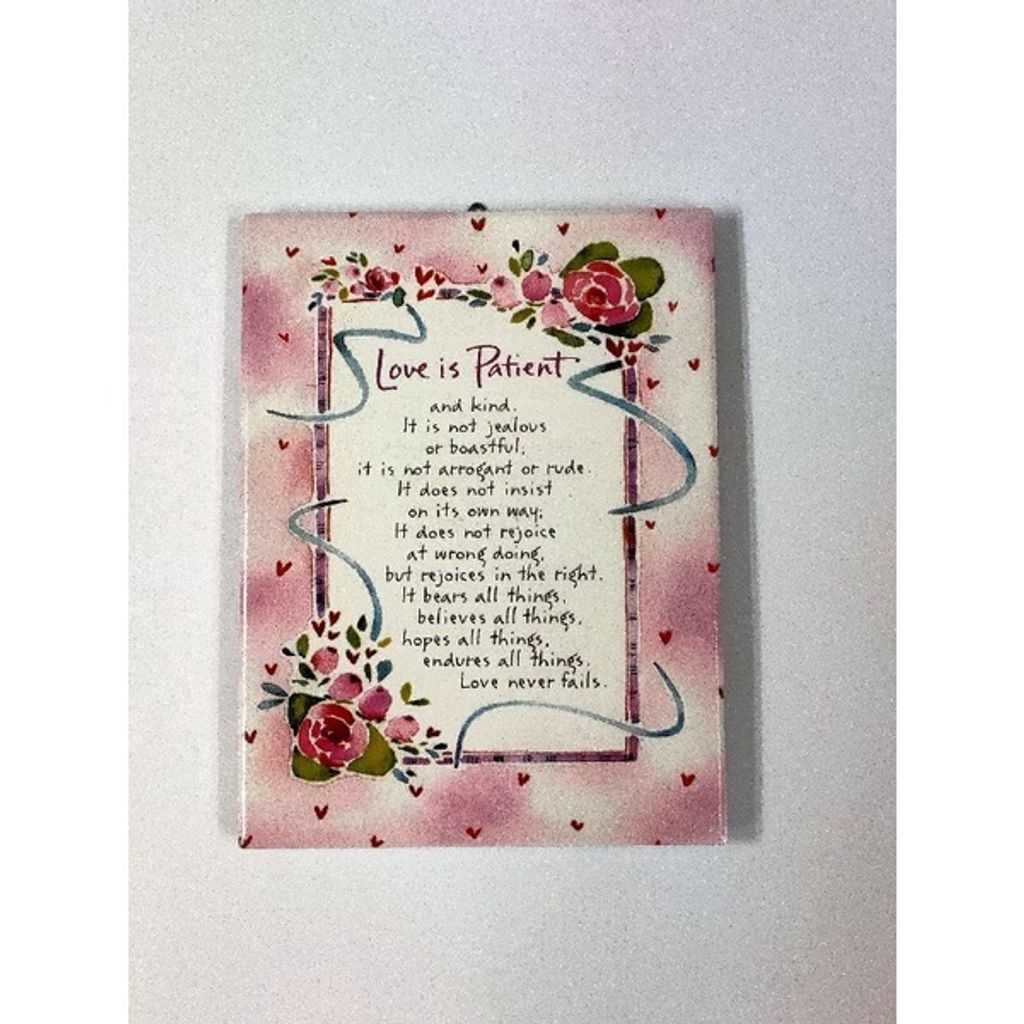 Love is Patient
and kind.
It is not jealous
or boastful;
it is not arrogant or rude.
It does not insist
on its own way;
It does not rejoice
at wrong doing,
but rejoices in the right.
It bears all things,
believes all things,
hopes all things,
endures all things.
Love never fails.